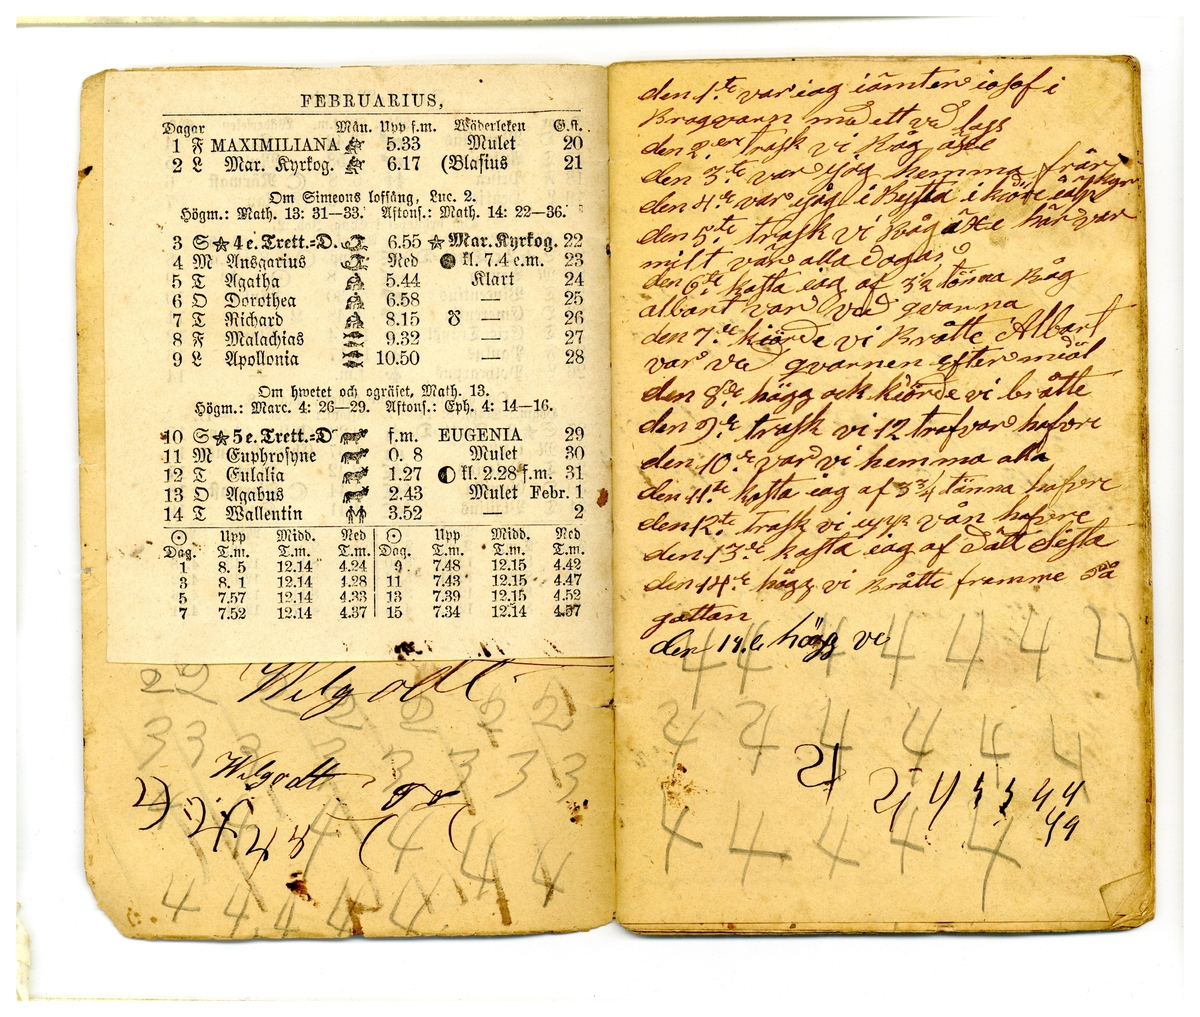 FEBRUARIUS,
Dagar Mån. Upp f.m. Wäderleken G.st.
1 F MAXIMILIANA 5.33 Mulet 20
2 L Mar. Kyrkog. 6.17 (Blasius 21
Om Simeons lofsång, Luc. 2.
Högm.: Math. 13: 31—33. Aftons.: Math. 14: 22—36.
3 S ★ 4 e. Trett.=D. 6.55 ★ Mar. Kyrkog. 22
4 M Ansgarius Ned ● kl. 7.4 e.m. 23
5 T Agatha 5.44 Klart 24
6 O Dorothea 6.58 — 25
7 T Richard 8.15 ☋ — 26
8 F Malachias 9.32 — 27
9 L Apollonia 10.50 — 28
Om hwetet och ogräset, Math. 13.
Högm.: Marc. 4: 26—29. Aftons.: Eph. 4: 14—16.
10 S ★ 5 e. Trett.=D f.m. EUGENIA 29
11 M Euphrosyne 0. 8 Mulet 30
12 T Eulalia 1.27 ◐ kl. 2.28 f.m. 31
13 O Agabus 2.43 Mulet Febr. 1
14 T Wallentin 3.52 2
☉ Upp Midd. Ned ☉ Upp Midd. Ned
Dag. T.m. T.m. T.m. Dag. T.m. T.m. T.m.
1 8. 5 12.14 4.24 9 7.48 12.15 4.42
3 8. 1 12.14 4.28 11 7.43 12.15 4.47
5 7.57 12.14 4.33 13 7.39 12.15 4.52
7 7.52 12.14 4.37 15 7.34 12.14 4.57
22 2 2 2 2 2
Wilgodt
33 3 3 3 3 3 3
Wilgodt
4 4 4 4 4
den 1.te var iag iämten iosef i
Bragvarn med ett ved lass
den 2.en trask vi Råg
den 3.te var iag hemma
den 4.de var iag i
den 5.te trask vi Råg här var
milt vär alla dagar
den 6.te kasta iag af 3½ tönna Råg
albart var ved qvarna
den 7.de kiörde vi Bråtte Albart
var ved qvarnen efter miöl
den 8.de högg ock kiörde vi bråtte
den 9.de trask vi 12 trafvar hafvre
den 10.de var vi hemma alla
den 11.te kasta iag af 3¾ tönna hafvre
den 12.te trask vi upp vån hafvre
den 13.de kasta iag af dätt sista
den 14.de högg vi Bråtte framme då
gattan
den 14.de högg vi
4 4 4 4 4 4
4 4 4 4 4 4
4 4 4 4 4